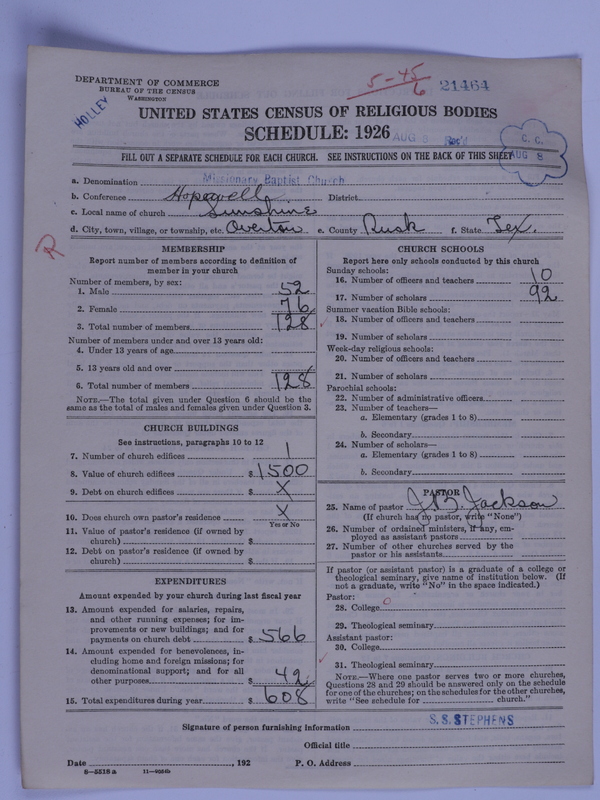 DEPARTMENT OF COMMERCE
BUREAU OF THE CENSUS
WASHINGTON
HOLLEY
5-45/6
21464
UNITED STATES CENSUS OF RELIGIOUS BODIES
SCHEDULE: 1926
AUG 9 Rec'd
C. C.
AUG 8
FILL OUT A SEPARATE SCHEDULE FOR EACH CHURCH. SEE INSTRUCTIONS ON THE BACK OF THIS SHEET
a. Denomination Missionary Baptist Church
b. Conference Hopewell District
c. Local name of church Sunshine
d. City, town, village, or township, etc. Overton e. County Rusk f. State Tex.
R
MEMBERSHIP
Report number of members according to definition of
member in your church
Number of members, by sex:
1. Male 52
2. Female 76
3. Total number of members 128
Number of members under and over 13 years old:
4. Under 13 years of age
5. 13 years old and over
6. Total number of members 128
NOTE.—The total given under Question 6 should be the
same as the total of males and females given under Question 3.
CHURCH BUILDINGS
See instructions, paragraphs 10 to 12
7. Number of church edifices 1
8. Value of church edifices $ 1500
9. Debt on church edifices $ X
10. Does church own pastor's residence X
Yes or No
11. Value of pastor's residence (if owned by
church) $
12. Debt on pastor's residence (if owned by
church) $
EXPENDITURES
Amount expended by your church during last fiscal year
13. Amount expended for salaries, repairs,
and other running expenses; for im-
provements or new buildings; and for
payments on church debt $ 566
14. Amount expended for benevolences, in-
cluding home and foreign missions; for
denominational support; and for all
other purposes $ 42
15. Total expenditures during year $ 608
CHURCH SCHOOLS
Report here only schools conducted by this church
Sunday schools:
16. Number of officers and teachers 10
17. Number of scholars 92
Summer vacation Bible schools:
18. Number of officers and teachers
19. Number of scholars
Week-day religious schools:
20. Number of officers and teachers
21. Number of scholars
Parochial schools:
22. Number of administrative officers
23. Number of teachers—
a. Elementary (grades 1 to 8)
b. Secondary
24. Number of scholars—
a. Elementary (grades 1 to 8)
b. Secondary
PASTOR
25. Name of pastor Jackson
(If church has no pastor, write "None")
26. Number of ordained ministers, if any, em-
ployed as assistant pastors
27. Number of other churches served by the
pastor or his assistants
If pastor (or assistant pastor) is a graduate of a college or
theological seminary, give name of institution below. (If
not a graduate, write "No" in the space indicated.)
Pastor:
28. College O
29. Theological seminary
Assistant pastor:
30. College
31. Theological seminary
NOTE.—Where one pastor serves two or more churches,
Questions 28 and 29 should be answered only on the schedule
for one of the churches; on the schedules for the other churches,
write "See schedule for church."
Signature of person furnishing information S. S. STEPHENS
Official title
Date , 192 P. O. Address
8-5518a